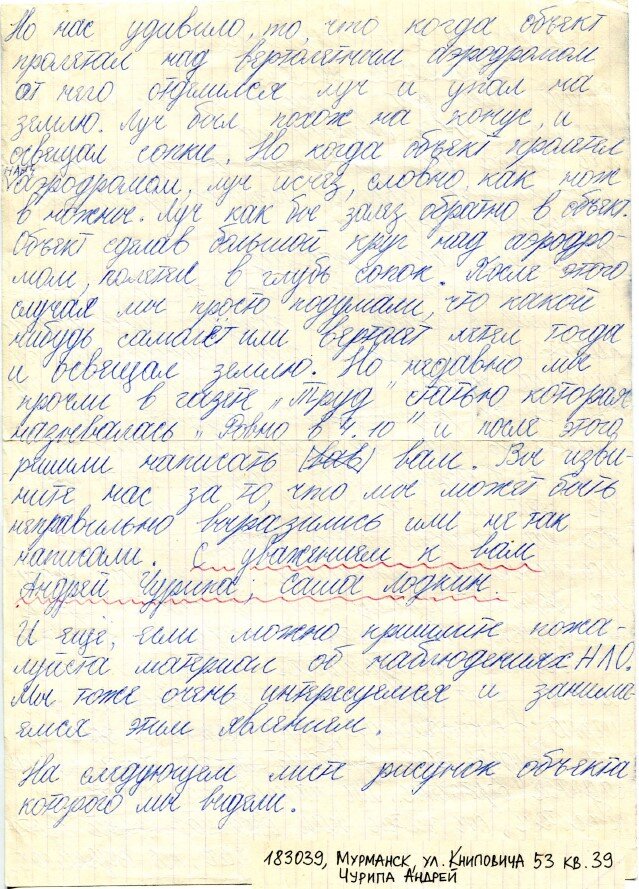 Но нас удивило, то, что когда объект
пролетал над вертолетным аэродромом
от него отделился луч и упал на
землю. Луч был похож на конус, и
освещал сопки. Но когда объект пролетел
над аэродромом, луч исчез, словно, как нож
в ножны. Луч как бы залез обратно в объект.
Объект сделав большой круг над аэродро-
мом, полетел в глубь сопок. После этого
случая мы просто подумали, что какой
нибудь самолёт или вертолёт летел тогда
и освещал землю. Но недавно мы
прочли в газете „Труд" статью которая
называлась „Ровно в 4.10" и после этого,
решили написать (вав) вам. Вы изви-
ните нас за то, что мы может быть
неправильно выразились или не так
написали. С уважением к вам
Андрей Чурипа, Саша Лодкин.
И еще, если можно пришлите пожа-
луйста материал об наблюдениях НЛО.
Мы тоже очень интересуемся и занима
емся этим явлением.
На следующем листе рисунок объекта
которого мы видели.
183039, Мурманск, ул. Книповича 53 кв. 39
Чурипа Андрей